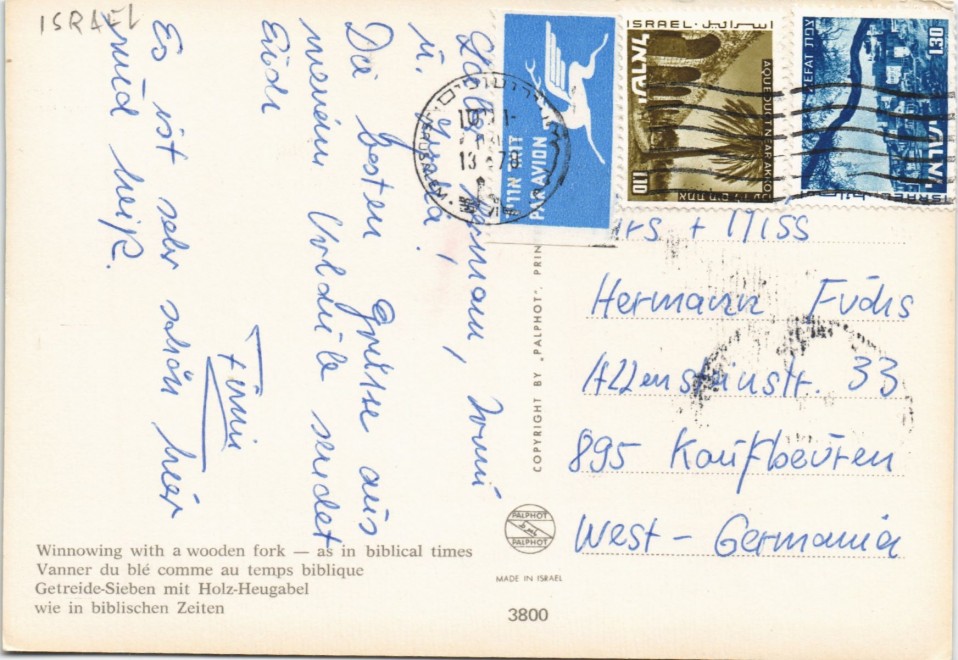 ISRAEL
u.
Die besten Grüße aus
meinem Urlaub sendet
Euch
Es ist sehr schön hier
und heiß.
Winnowing with a wooden fork — as in biblical times
Vanner du blé comme au temps biblique
Getreide-Sieben mit Holz-Heugabel
wie in biblischen Zeiten
COPYRIGHT BY „PALPHOT". PRIN
PALPHOT
PALPHOT
MADE IN ISRAEL
3800
PAR AVION
ISRAEL
ישראל
AQUEDUCT NEAR AKKO
1.10
ZEFAT צפת
1.30
ישראל
ISRAEL
JERUSALEM
13 78
+ Miss
Hermann Fuchs
Allensteinstr. 33
895 Kaufbeuren
West - Germania